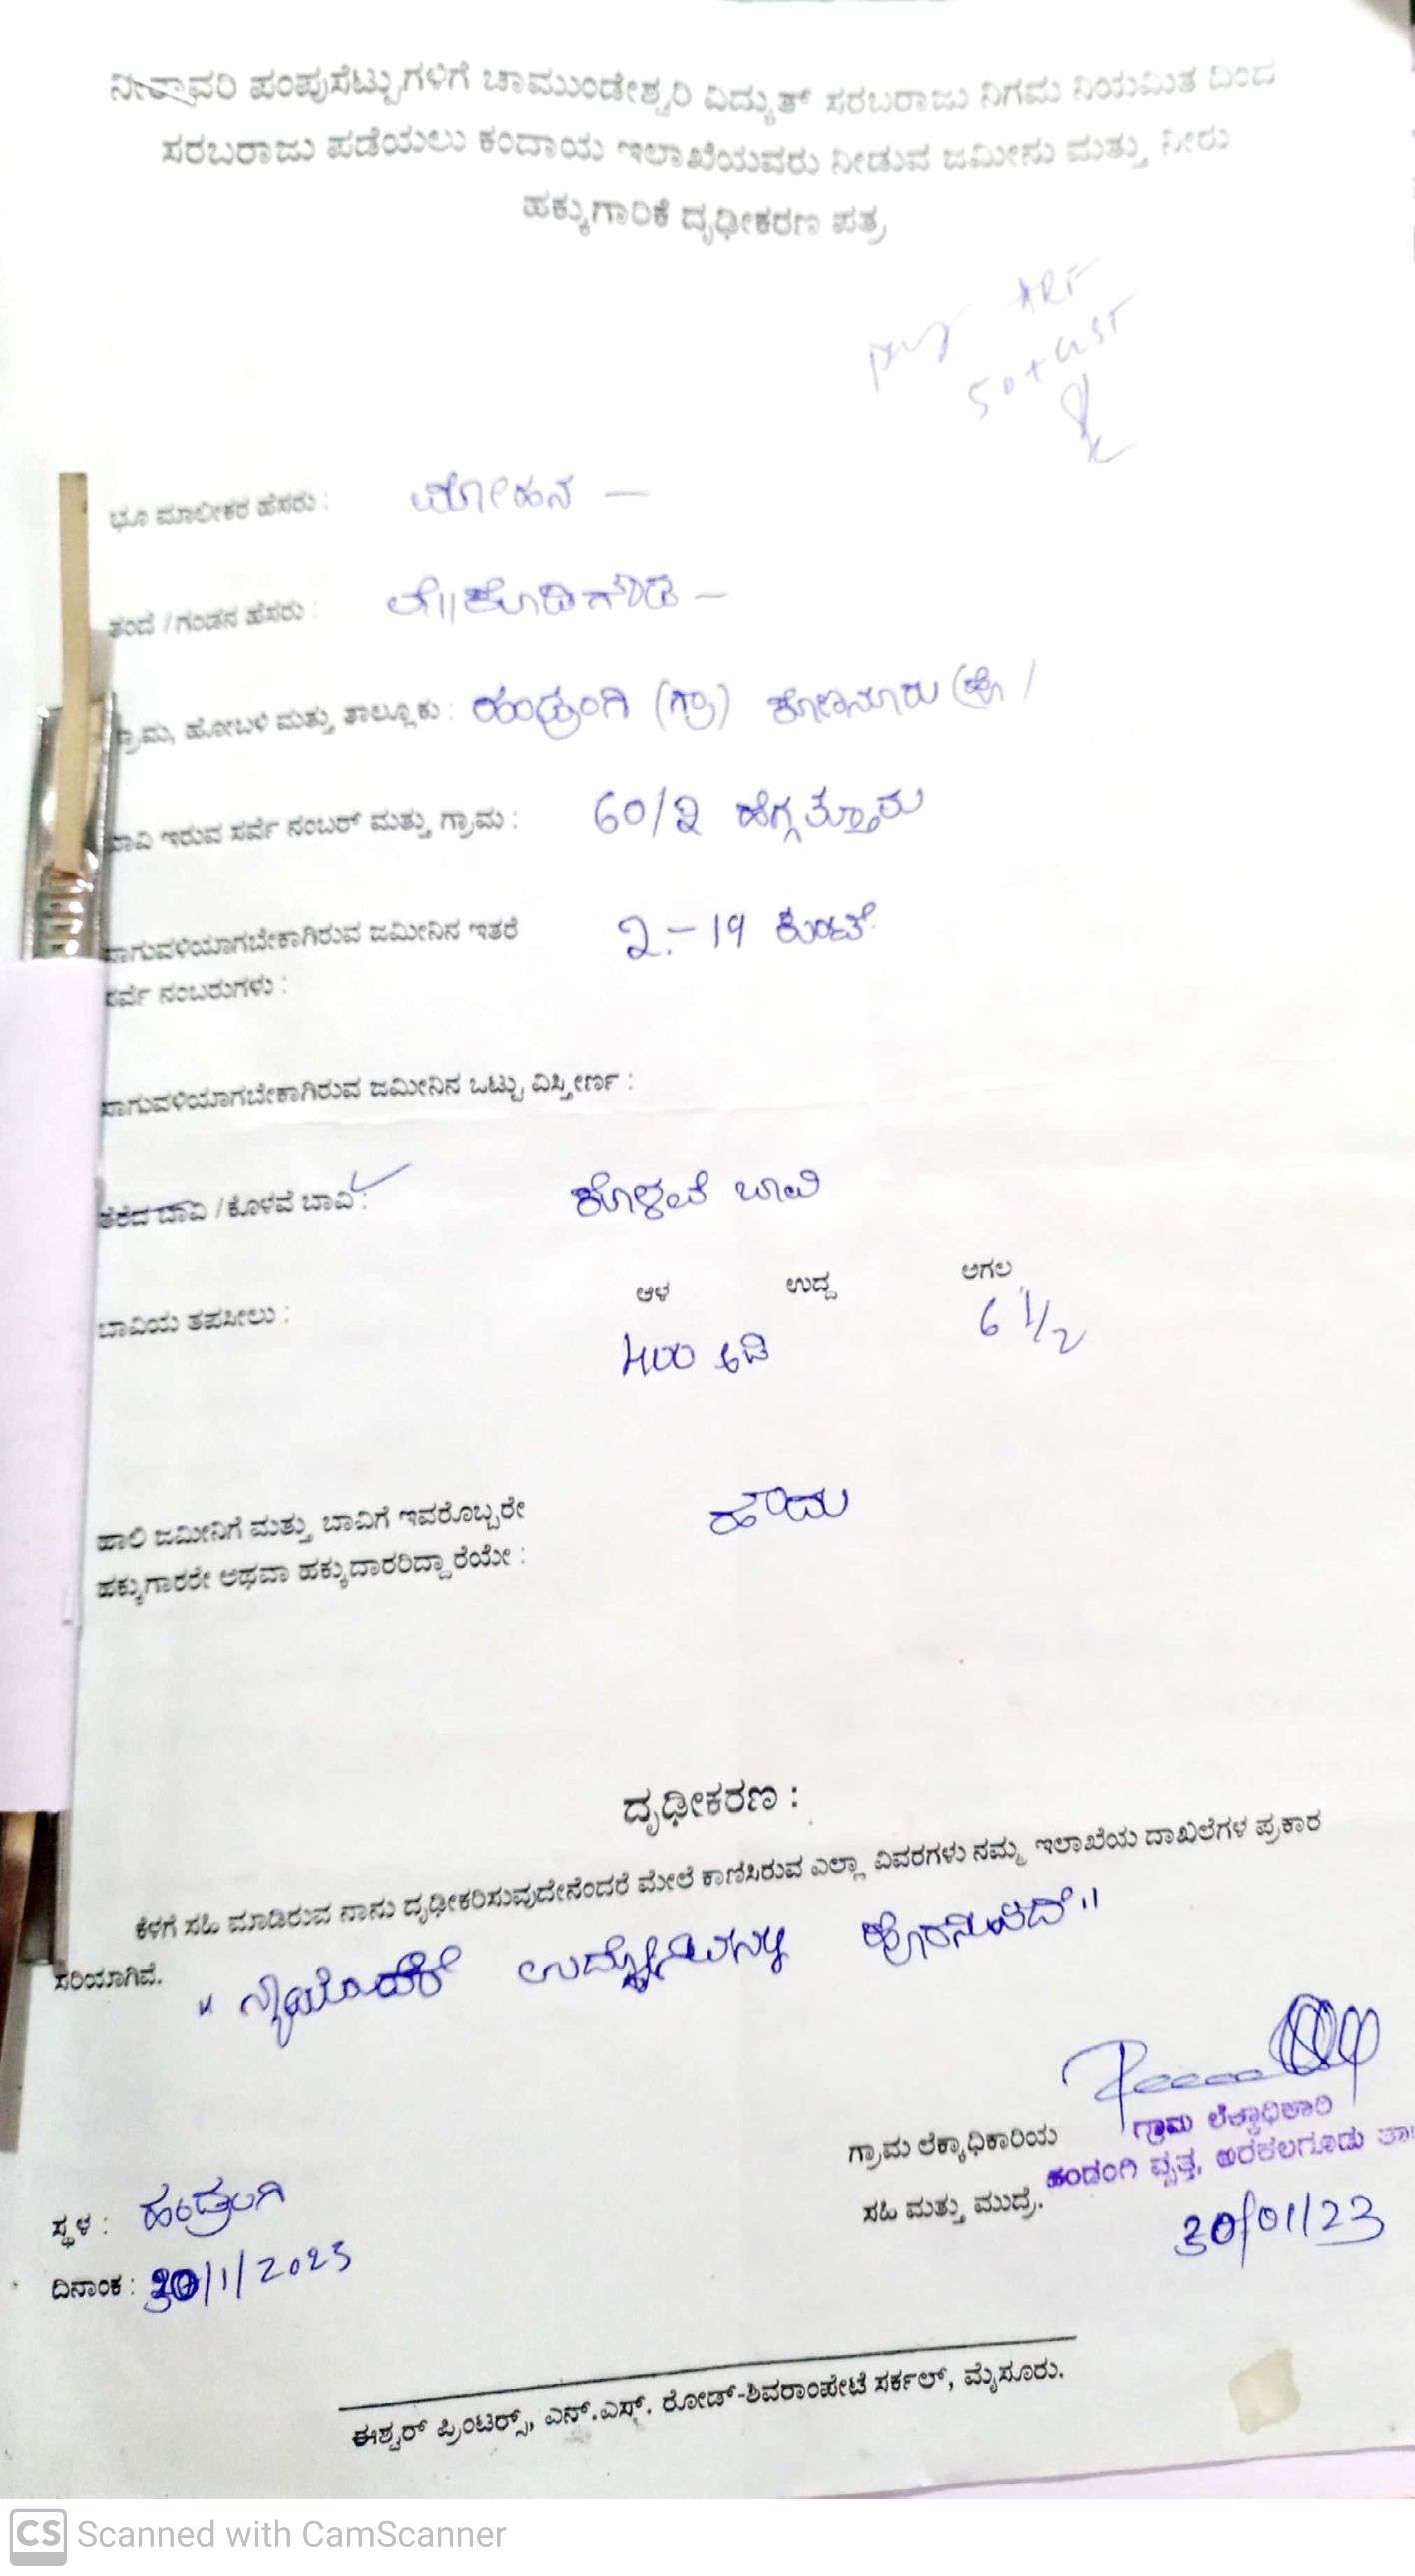 ನೀರಾವರಿ ಪಂಪುಸೆಟ್ಟುಗಳಿಗೆ ಚಾಮುಂಡೇಶ್ವರಿ ವಿದ್ಯುತ್ ಸರಬರಾಜು ನಿಗಮ ನಿಯಮಿತ ದಿಂದ
ಸರಬರಾಜು ಪಡೆಯಲು ಕಂದಾಯ ಇಲಾಖೆಯವರು ನೀಡುವ ಜಮೀನು ಮತ್ತು ನೀರು
ಹಕ್ಕುಗಾರಿಕೆ ದೃಢೀಕರಣ ಪತ್ರ
ARF
50+GST
ಭೂ ಮಾಲೀಕರ ಹೆಸರು : ಮೋಹನ —
ತಂದೆ / ಗಂಡನ ಹೆಸರು :
ಗ್ರಾಮ, ಹೋಬಳಿ ಮತ್ತು ತಾಲ್ಲೂಕು : ಹಂಡ್ರಂಗಿ (ಗ್ರಾ) ಕೋಣನೂರು (ಹೋ /
ಬಾವಿ ಇರುವ ಸರ್ವೆ ನಂಬರ್ ಮತ್ತು ಗ್ರಾಮ : 60/೩ ಹೆಗ್ಗತ್ತೂರು
ಸಾಗುವಳಿಯಾಗಬೇಕಾಗಿರುವ ಜಮೀನಿನ ಇತರೆ 2.-19 ಕುಂಟೆ
ಸರ್ವೆ ನಂಬರುಗಳು :
ಸಾಗುವಳಿಯಾಗಬೇಕಾಗಿರುವ ಜಮೀನಿನ ಒಟ್ಟು ವಿಸ್ತೀರ್ಣ :
ತೆರೆದ ಬಾವಿ / ಕೊಳವೆ ಬಾವಿ : ಕೊಳವೆ ಬಾವಿ
ಆಳ ಉದ್ದ ಅಗಲ
ಬಾವಿಯ ತಪಸೀಲು : 400 ಅಡಿ 6 1/2
ಹಾಲಿ ಜಮೀನಿಗೆ ಮತ್ತು ಬಾವಿಗೆ ಇವರೊಬ್ಬರೇ ಹೌದು
ಹಕ್ಕುಗಾರರೇ ಅಥವಾ ಹಕ್ಕುದಾರರಿದ್ದಾರೆಯೇ :
ದೃಢೀಕರಣ :
ಕೆಳಗೆ ಸಹಿ ಮಾಡಿರುವ ನಾನು ದೃಢೀಕರಿಸುವುದೇನೆಂದರೆ ಮೇಲೆ ಕಾಣಿಸಿರುವ ಎಲ್ಲಾ ವಿವರಗಳು ನಮ್ಮ ಇಲಾಖೆಯ ದಾಖಲೆಗಳ ಪ್ರಕಾರ
ಸರಿಯಾಗಿವೆ.
ಗ್ರಾಮ ಲೆಕ್ಕಾಧಿಕಾರಿಯ ಗ್ರಾಮ ಲೆಕ್ಕಾಧಿಕಾರಿ
ಸಹಿ ಮತ್ತು ಮುದ್ರೆ. ಹಂಡ್ರಂಗಿ ವೃತ್ತ, ಅರಕಲಗೂಡು ತಾ
ಸ್ಥಳ : ಹಂಡ್ರಂಗಿ 30/01/23
ದಿನಾಂಕ : 30/1/2023
ಈಶ್ವರ್ ಪ್ರಿಂಟರ್ಸ್, ಎನ್.ಎಸ್. ರೋಡ್-ಶಿವರಾಂಪೇಟೆ ಸರ್ಕಲ್, ಮೈಸೂರು.
CS Scanned with CamScanner